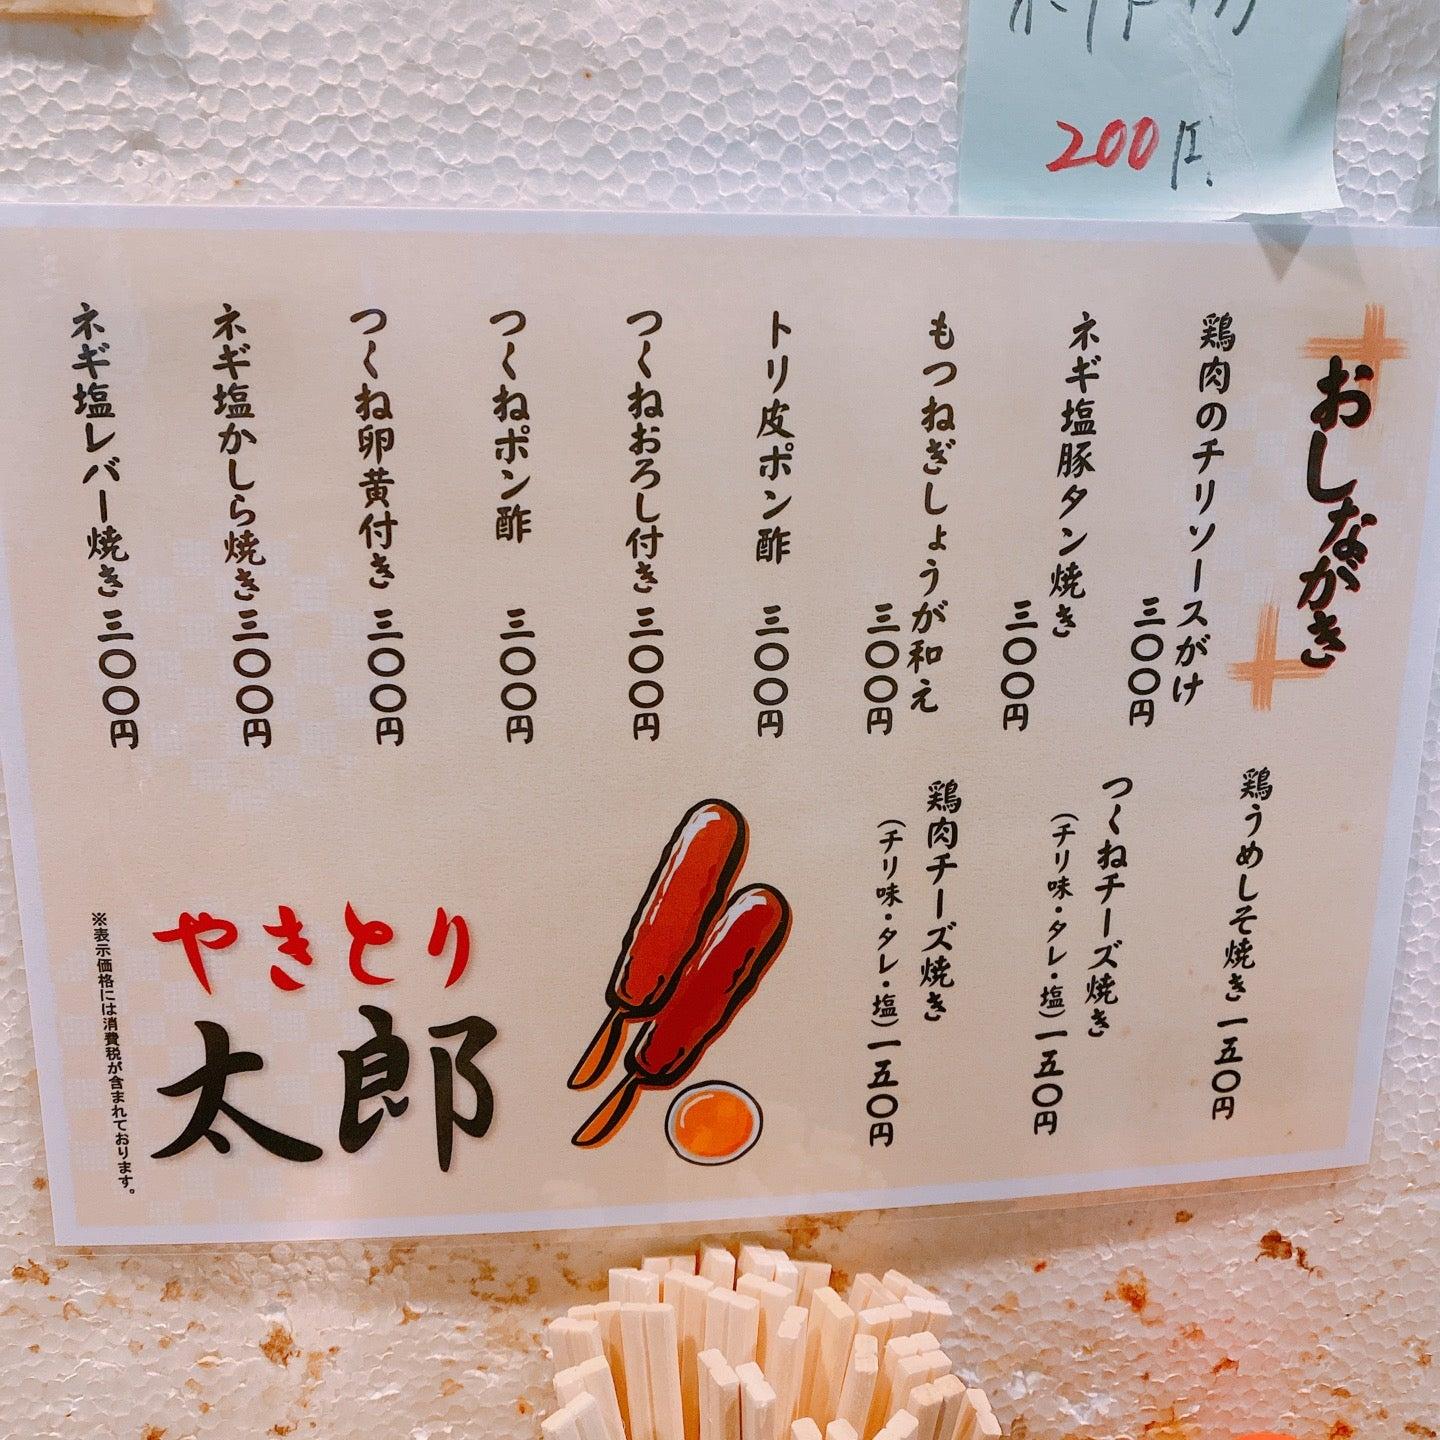 200円
おしながき
鶏肉のチリソースがけ
三〇〇円
ネギ塩豚タン焼き
三〇〇円
もつねぎしょうが和え
三〇〇円
トリ皮ポン酢 三〇〇円
つくねおろし付き 三〇〇円
つくねポン酢 三〇〇円
つくね卵黄付き 三〇〇円
ネギ塩かしら焼き 三〇〇円
ネギ塩レバー焼き 三〇〇円
鶏うめしそ焼き 一五〇円
つくねチーズ焼き
(チリ味・タレ・塩) 一五〇円
鶏肉チーズ焼き
(チリ味・タレ・塩) 一五〇円
やきとり
太郎
※表示価格には消費税が含まれております。